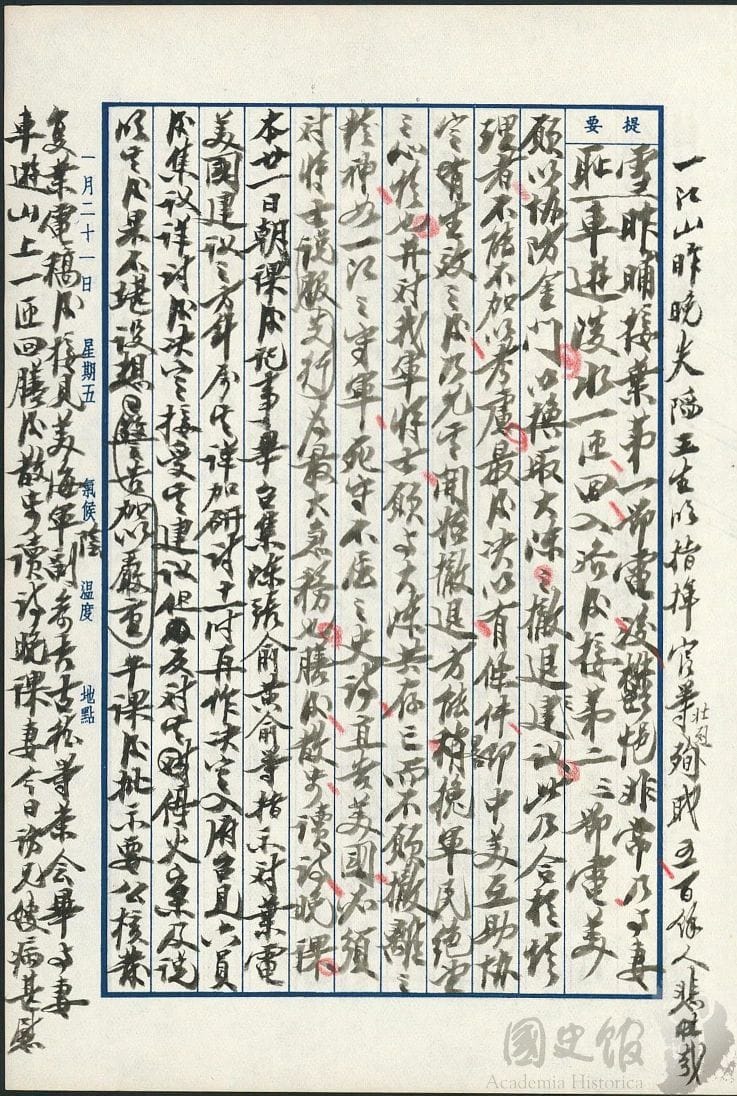 一江山昨晚失陷王生明指揮官等壯烈殉職五百餘人悲壯哉
提要
雪恥昨晡接葉第一部電後鬱悒非常乃與妻
車遊淡水一匝回入浴後接第二三部電美
願以協防金門以換取大陳之撤退建議此乃合於情
理者不能不加以考慮最後決以有條件即中美互助協
定有生效之後乃允其開始撤退方能稍挽軍民絕望
之心情也并對我軍將士願與大陳共存亡而不願撤離之
精神如一江之守軍死守不屈之史詩直告美國必須
對將士說服先行為最大急務也膳後散步讀詩晚課
本廿一日朝課後記事畢召集陳張俞黃俞等指示對葉電
美國建議之方針屬其詳加研討十一時再作決定入府召見六員
後集議詳討後決定接受其建議但反對其停火案及說
明其後果不堪設想 加以嚴重午課後批示要公核葉
一月二十一日 星期五 氣候陰 溫度 地點
復葉電稿後接見美海軍副參長古柏等茶會畢與妻
車遊山上一匝回膳後散步讀詩晚課妻今日訪兄嫂病甚慰
國史館
Academia Historica